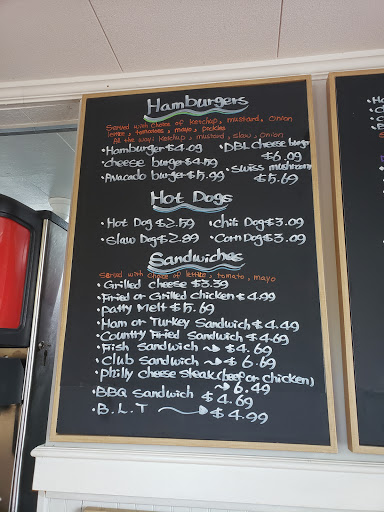 Hamburgers
Served with choice of ketchup, mustard, onion
lettice, tomatoes, mayo, pickles
All the way: ketchup, mustard, slaw, onion
• Hamburger $4.09 • DBL cheese burger
$6.09
• cheese burger $4.59 • Swiss mushroom
• Avacado burger $5.99 $5.69
Hot Dogs
• Hot Dog $2.59 • chili Dog $3.09
• Slaw Dog $2.89 • Corn Dog $3.09
Sandwiches
Served with choice of lettice, tomato, mayo
• Grilled cheese $3.39
• Fried or Grilled chicken $4.99
• patty Melt $5.69
• Ham or Turkey Sandwich $4.49
• Country Fried Sandwich $4.69
• Fish Sandwich → $4.69
• Club Sandwich → $6.69
• philly cheese steak (beef or chicken)
→ 6.49
• BBQ Sandwich $4.69
• B.L.T → $4.99